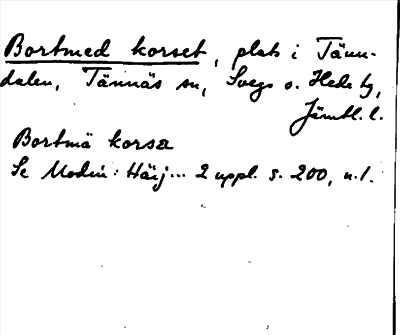 Bortmed korset, plats i Tänn-
dalen, Tännäs sn, Svegs o. Hede tg,
Jämtl. l.
Bortmä korsa
Se Modin: Härj... 2 uppl. s. 200, n. 1.